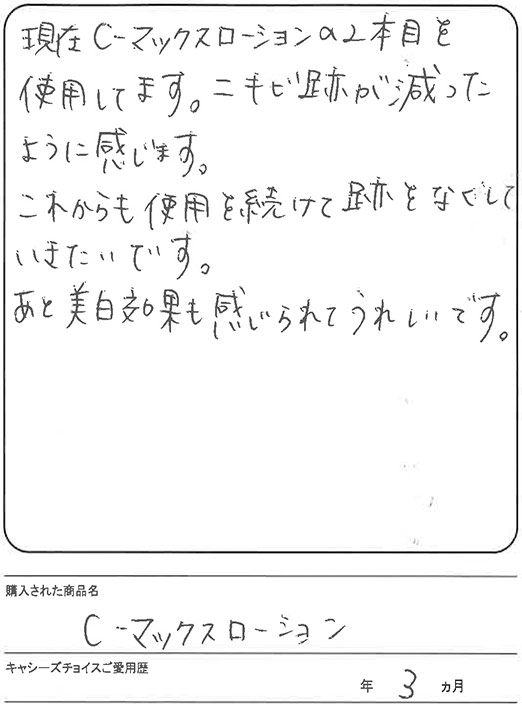 現在C-マックスローションの2本目を
使用してます。ニキビ跡が減った
ように感じます。
これからも使用を続けて跡をなくして
いきたいです。
あと美白効果も感じられてうれしいです。
購入された商品名
C-マックスローション
キャシーズチョイスご愛用歴
年 3 ヵ月